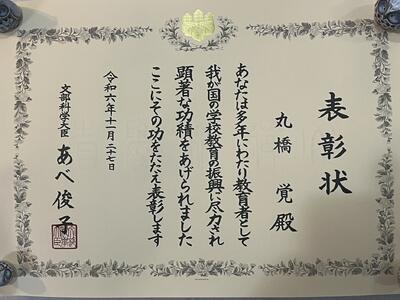 表彰状
丸橋 覚 殿
あなたは多年にわたり教育者として
我が国の学校教育の振興に尽力され
顕著な功績をあげられました
ここにその功をたたえ表彰します
令和六年十一月二十七日
文部科学大臣 あべ 俊子